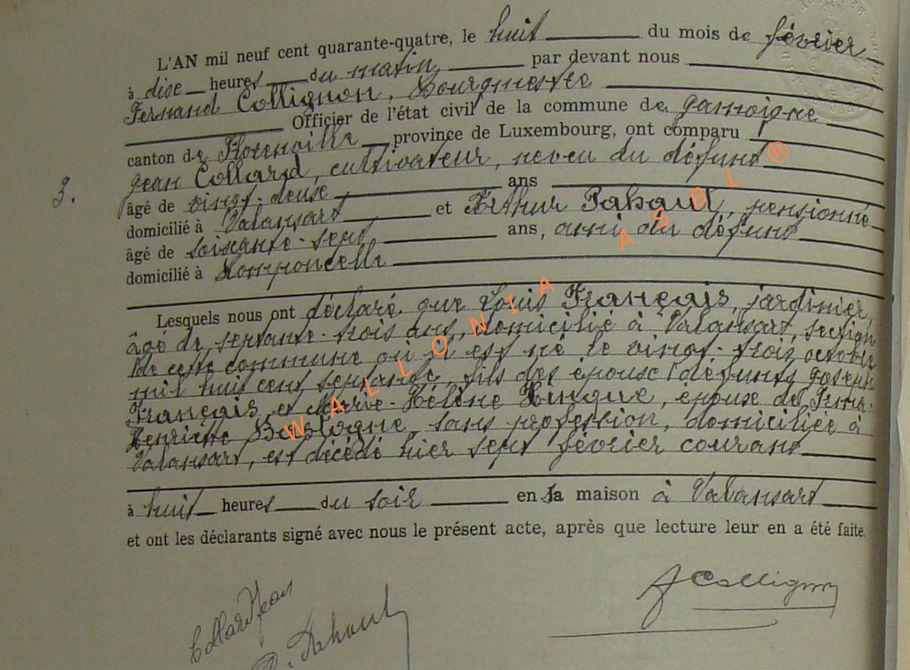 L'AN mil neuf cent quarante-quatre, le huit du mois de février
à dise heures du matin par devant nous
Fernand Collignon, Bourgmestre
Officier de l'état civil de la commune de
canton de Florenville province de Luxembourg, ont comparu
Jean Collard, cultivateur, neveu du défunt
3.
âgé de vingt-deuse ans
domicilié à Valansart et Arthur pensionné
âgé de soisante-sept ans, ami du défunt
domicilié à
Lesquels nous ont déclaré que Louis Français, jardinier,
âgé de septante-trois ans, domicilié à Valansart, section
de cette commune où il est né le vingt-trois octobre
mil huit cent septante, fils des épouse défunts Joseph
Français, et Marie-Hélène épouse de
Henriette sans profession, domiciliée à
Valansart, est décédé hier sept février courant
à huit heures du soir en sa maison à Valansart
et ont les déclarants signé avec nous le présent acte, après que lecture leur en a été faite.
FCollignon
Collard Jean
WALLONIA ASBL ®